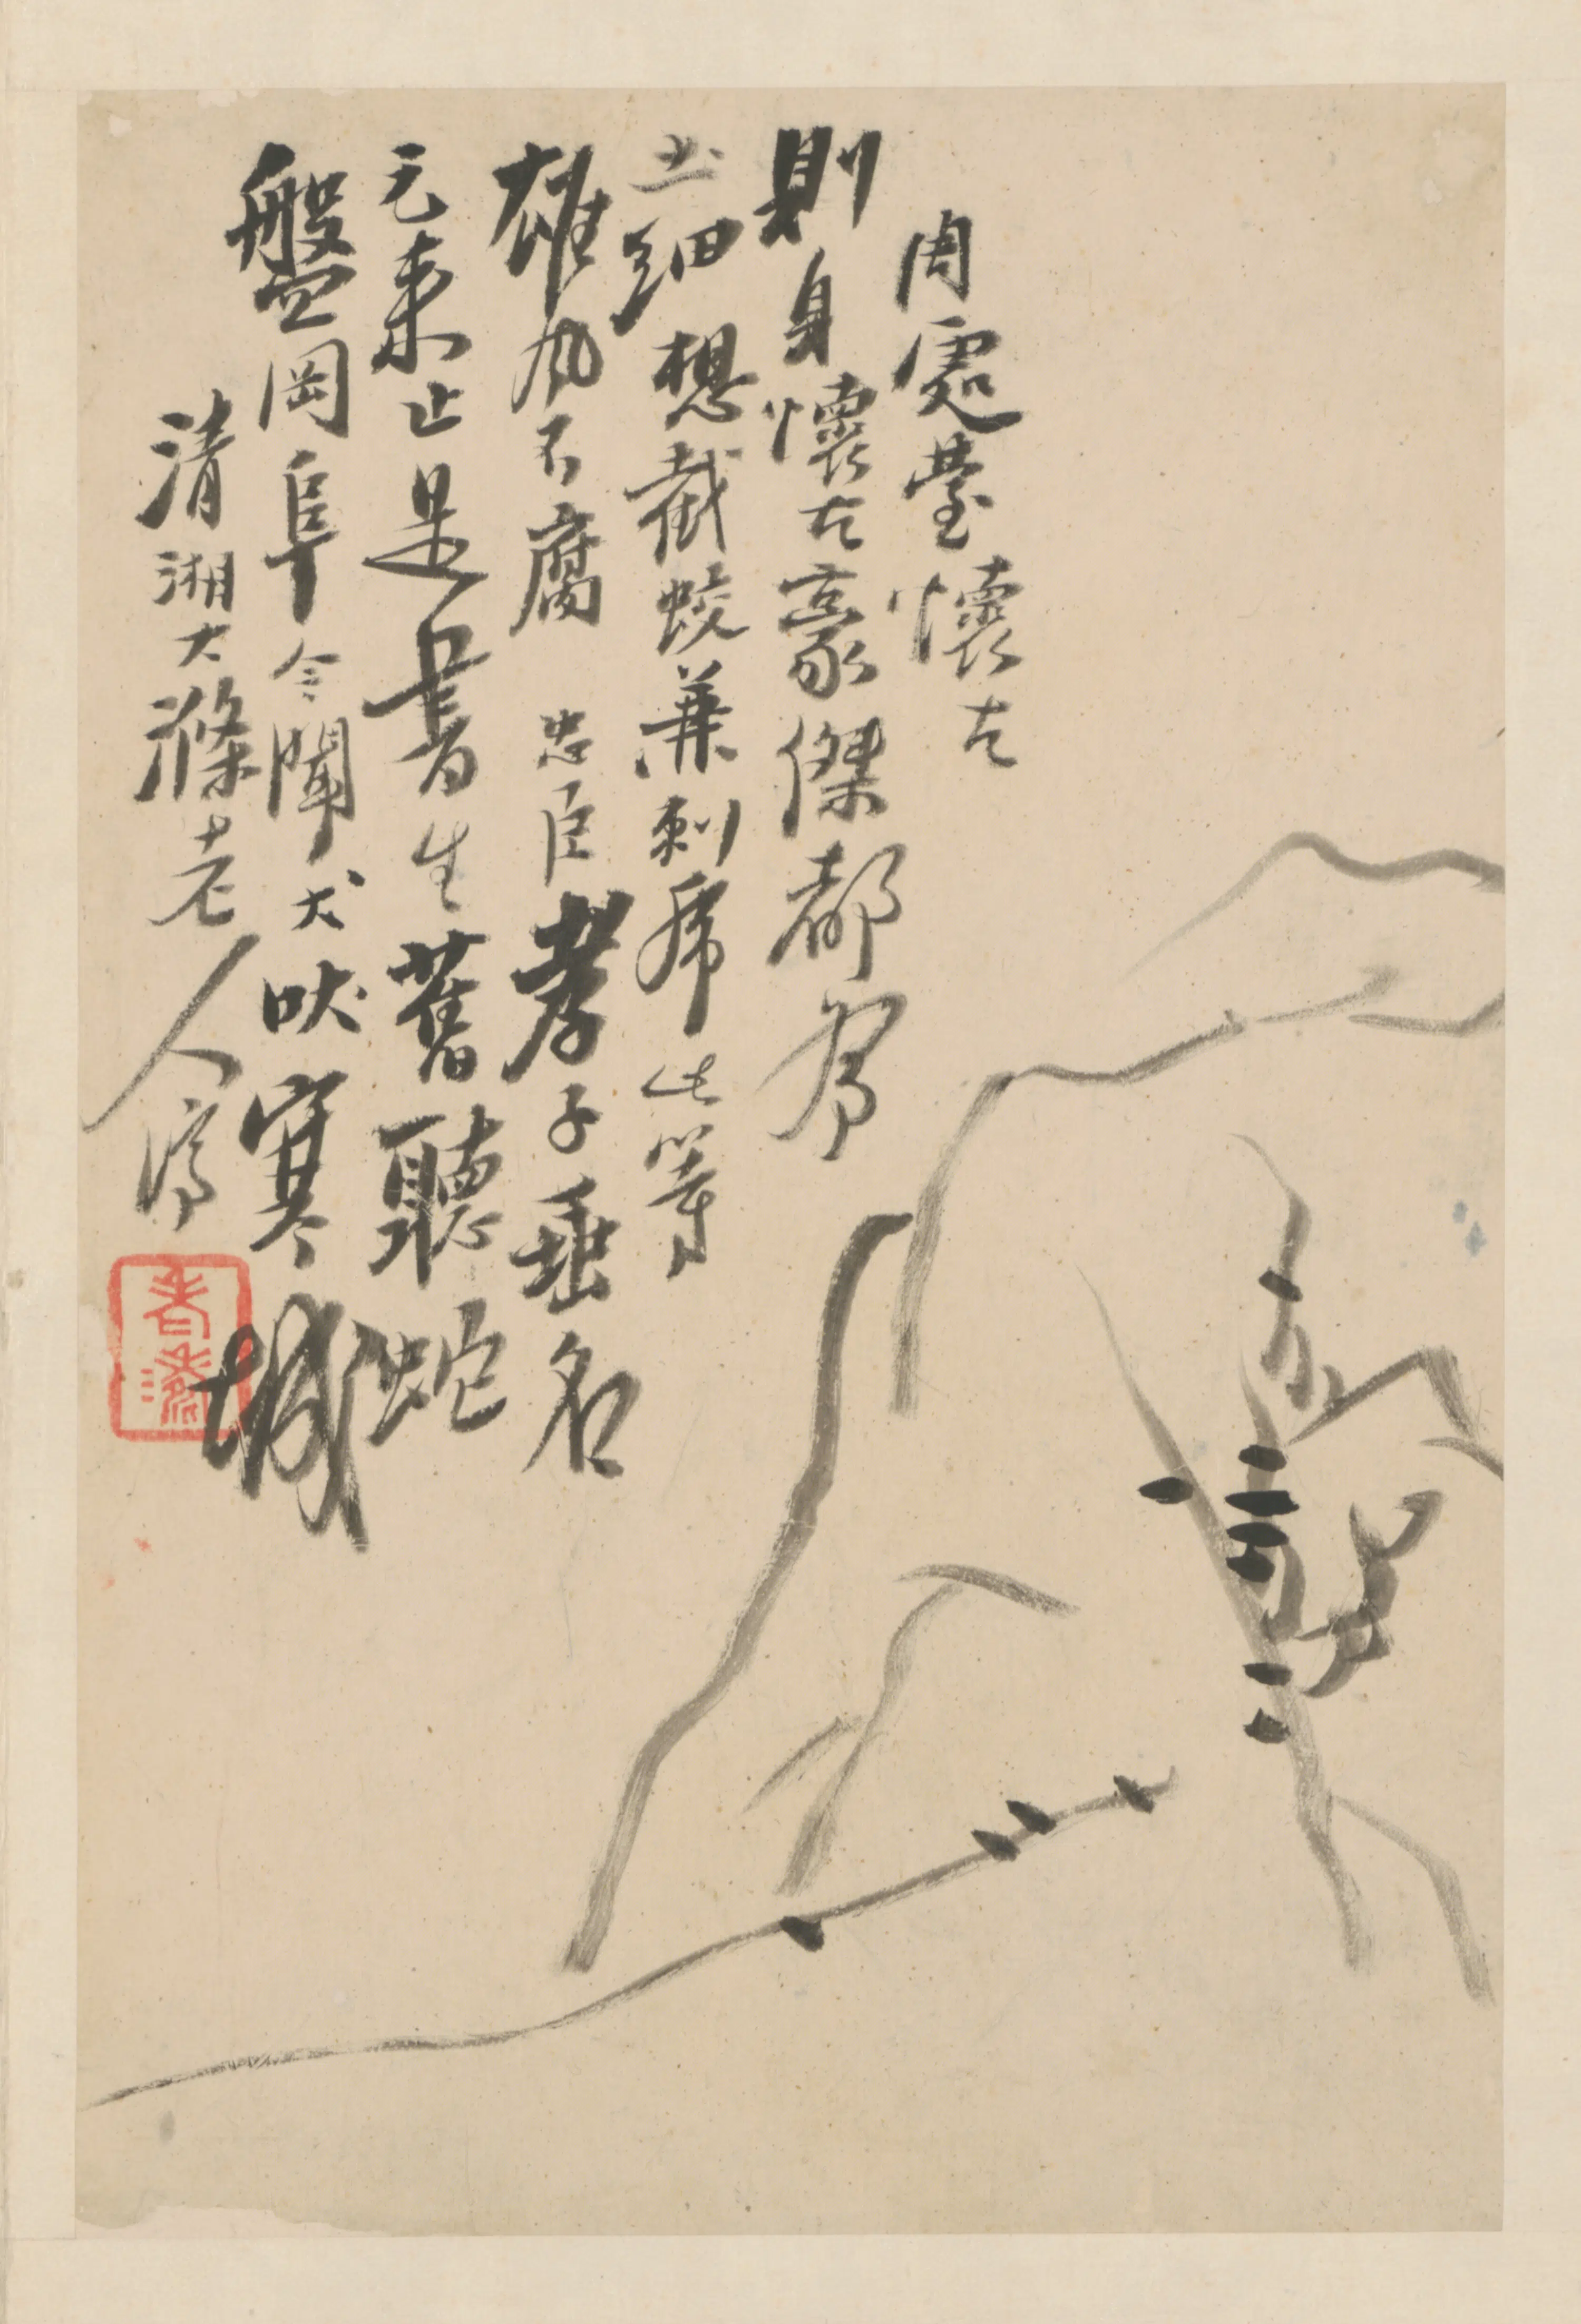 周處臺懷古
則身懷古豪傑都為
此細想截蛟兼刺虎此等
雄風不腐忠臣孝子垂名
元來止是書生舊聽蛇
盤岡阜今聞犬吠寒城
清湘大滌老人濟